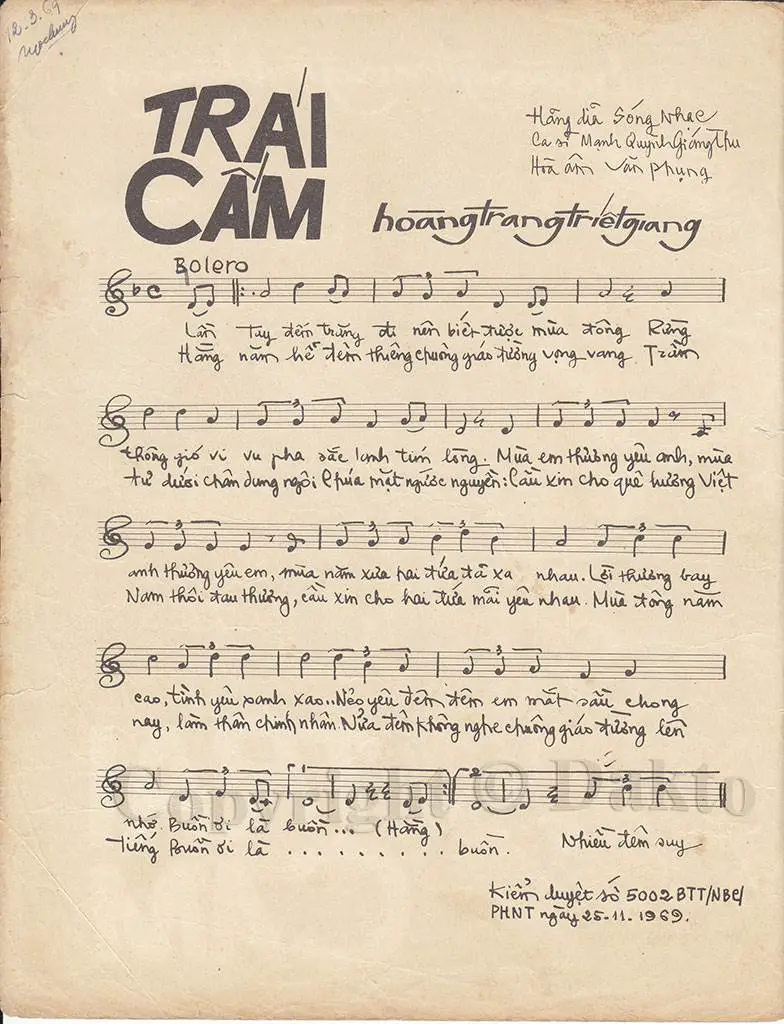 12.3.69
TRÁI
CẤM
Hãng dĩa Sóng Nhạc
Ca sĩ Mạnh Quỳnh Giáng Thu
Hòa âm Văn Phụng
hoàngtrangtriếtgiang
Bolero
Lần Tay đếm trăng đi nên biết được mùa đông Rừng
Hằng năm hễ đêm thiêng chuông giáo đường vọng vang Trầm
thông gió vi vu pha sắc lạnh tím lòng. Mùa em thương yêu anh, mùa
tư dưới chân dung ngôi Chúa mặt ngước nguyền: Cầu xin cho quê hương Việt
anh thương yêu em, mùa năm xưa hai đứa đã xa nhau. Lời thương bay
Nam thôi đau thương, cầu xin cho hai đứa mãi yêu nhau. Mùa đông năm
cao, tình yêu xanh xao.. Nẻo yêu đêm đêm em mắt sầu chong
nay, làm thân chinh nhân Nửa đêm không nghe chuông giáo đường lên
nhớ. Buồn ơi là buồn... (Hằng)
Tiếng Buồn ơi là . . . . . . . . . buồn. Nhiều đêm suy
Copyright © Dakto
Kiểm duyệt số 5002 BTT/NBC/
PHNT ngày 25-11-1969.